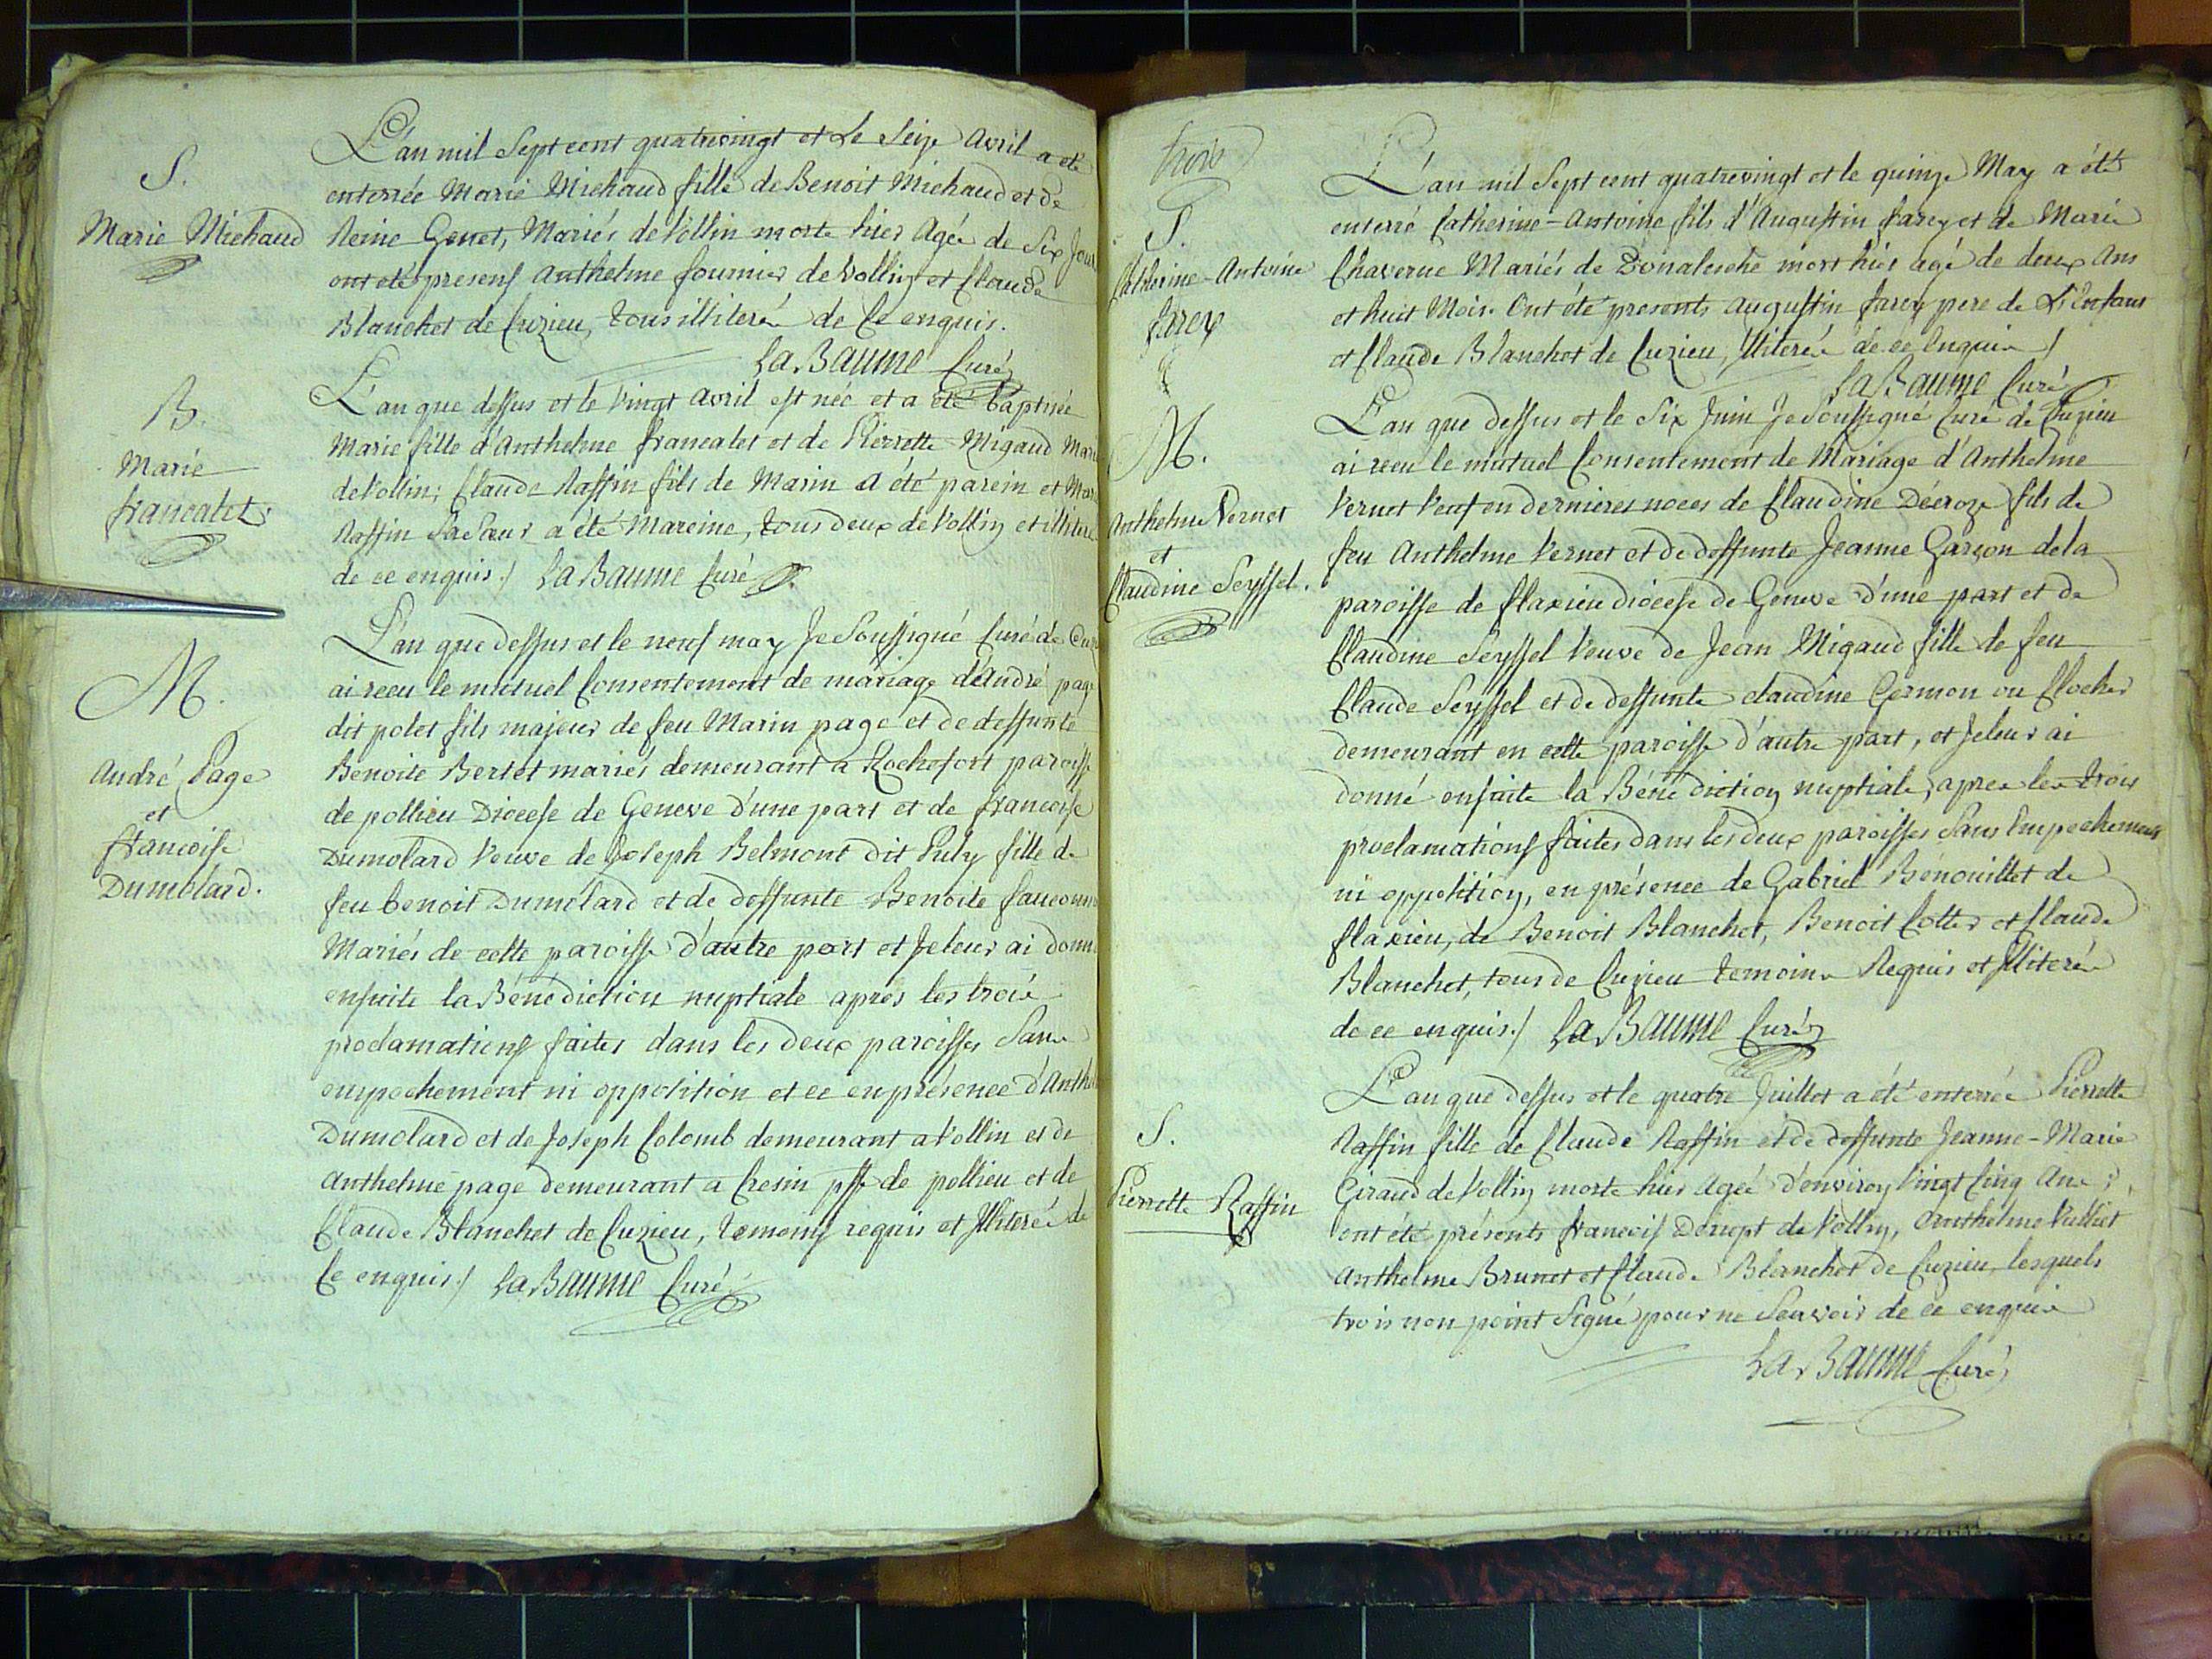 S.
Marie Michaud
L'an mil Sept cent quatrevingt et Le Seize Avril a été
enterrée Marie Michaud fille de Benoit Michaud et de
Reine Genet, Mariés de Vollin morte hier Agée de Six Jours
ont été presens Anthelme fournier de Vollin et Claude
Blanchet de Cuzieu, tous illiterés de Ce enquis.
La Baume Curé
B.
Marie
francalet.
L'an que dessus et le Vingt Avril est née et a été baptisée
Marie fille d'Anthelme francalet et de Pierrette Migaud Mari
de Vollin; Claude Raffin fils de Marin a été parein et Mar
Raffin Sa Sœur a été Mareine, tous deux de Vollin et illitere
de ce enquis./ La Baume Curé
M.
André Page
et
francoise
Dumolard.
L'an que dessus et le neuf may Je Soussigné Curé de Cuz
ai receu le mutuel Consentement de mariage d'André page
dit polet fils majeur de feu Marin page et de deffunte
Benoite Bertet mariés demeurant a Rochefort paroisse
de pollieu Diocese de Geneve d'une part et de francoise
Dumolard Veuve de Joseph Belmont dit Puly fille de
feu benoit Dumolard et de deffunte Benoite fauconn
Mariés de cette paroisse d'autre part et Je leur ai donn
ensuite la Bénédiction nuptiale apres les trois
proclamations faites dans les deux paroisses Sans
empechement ni oppolition et ce en présence d'Anthel
Dumolard et de Joseph Colomb demeurant a Vollin et de
Anthelme page demeurant a Cresin psse de pollieu et de
Claude Blanchet de Cuzieu, temoins requis et Illiterés de
Ce enquis./ La Baume Curé
trois
S.
Catherine-Antoine
farcy
L'an mil Sept cent quatrevingt et le quinze May a été
enterré Catherine-Antoine fils d'Augustin farcy et de Marie
Chaverne Mariés de mort hier agé de deux Ans
et huit Mois. Ont été presents Augustin farcy pere de L'Enfant
et Claude Blanchet de Cuzieu, Illiterés de ce Enquis /
La Baume Curé
M.
Anthelme Vernet
et
Claudine Seyssel.
L'an que dessus et le Six Juin Je Soussigné Curé de Cuzieu
ai receu le mutuel Consentement de Mariage d'Anthelme
Vernet Veuf en dernieres noces de Claudine Décroze fils de
feu Anthelme Vernet et de deffunte Jeanne Garçon de la
paroisse de flaxieu diocese de Geneve d'une part et de
Claudine Seyssel Veuve de Jean Migaud fille de feu
Claude Seyssel et de deffunte claudine Germon ou Clocher
demeurant en cette paroisse d'autre part, et Je leur ai
donné ensuite la Bénédiction nuptiale, apres les trois
proclamations faites dans les deux paroisses Sans Empechements
ni oppolition, en présence de Gabriel Bénouillet de
flaxieu, de Benoit Blanchet, Benoit Cotter et Claude
Blanchet, tous de Cuzieu temoins Requis et Illiterés
de ce enquis./ La Baume Curé
S.
Pierrette Raffin
L'an que dessus et le quatre Juillet a été enterrée Pierrette
Raffin fille de Claude Raffin et de deffunte Jeanne-Marie
Giraud de Vollin morte hier Agée d'environ Vingt Cinq Ans;
ont été présents francois de Vollin, Anthelme Vulliet
Anthelme Brunet et Claude Blanchet de Cuzieu, lesquels
trois non point Signé pour ne Scavoir de ce enquis
La Baume Curé